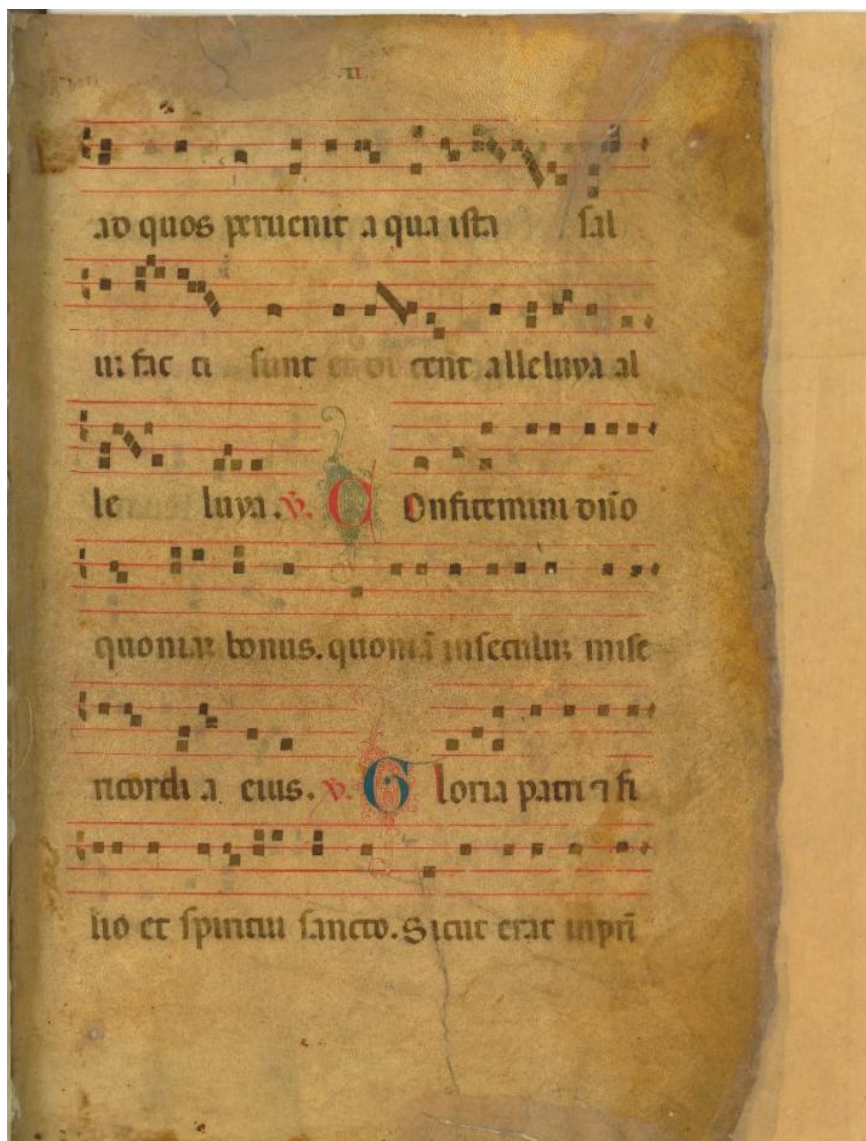 .II.
ad quos peruenit a qua ista sal
ui fac ti sunt et di cent alleluya al
le luya. V. C Onfitemini dño
quoniaz bonus. quoniã inseculuz mise
ricordi a eius. V. G loria patri ⁊ fi
lio et spiritui sancto. Sicut erat inpri̅